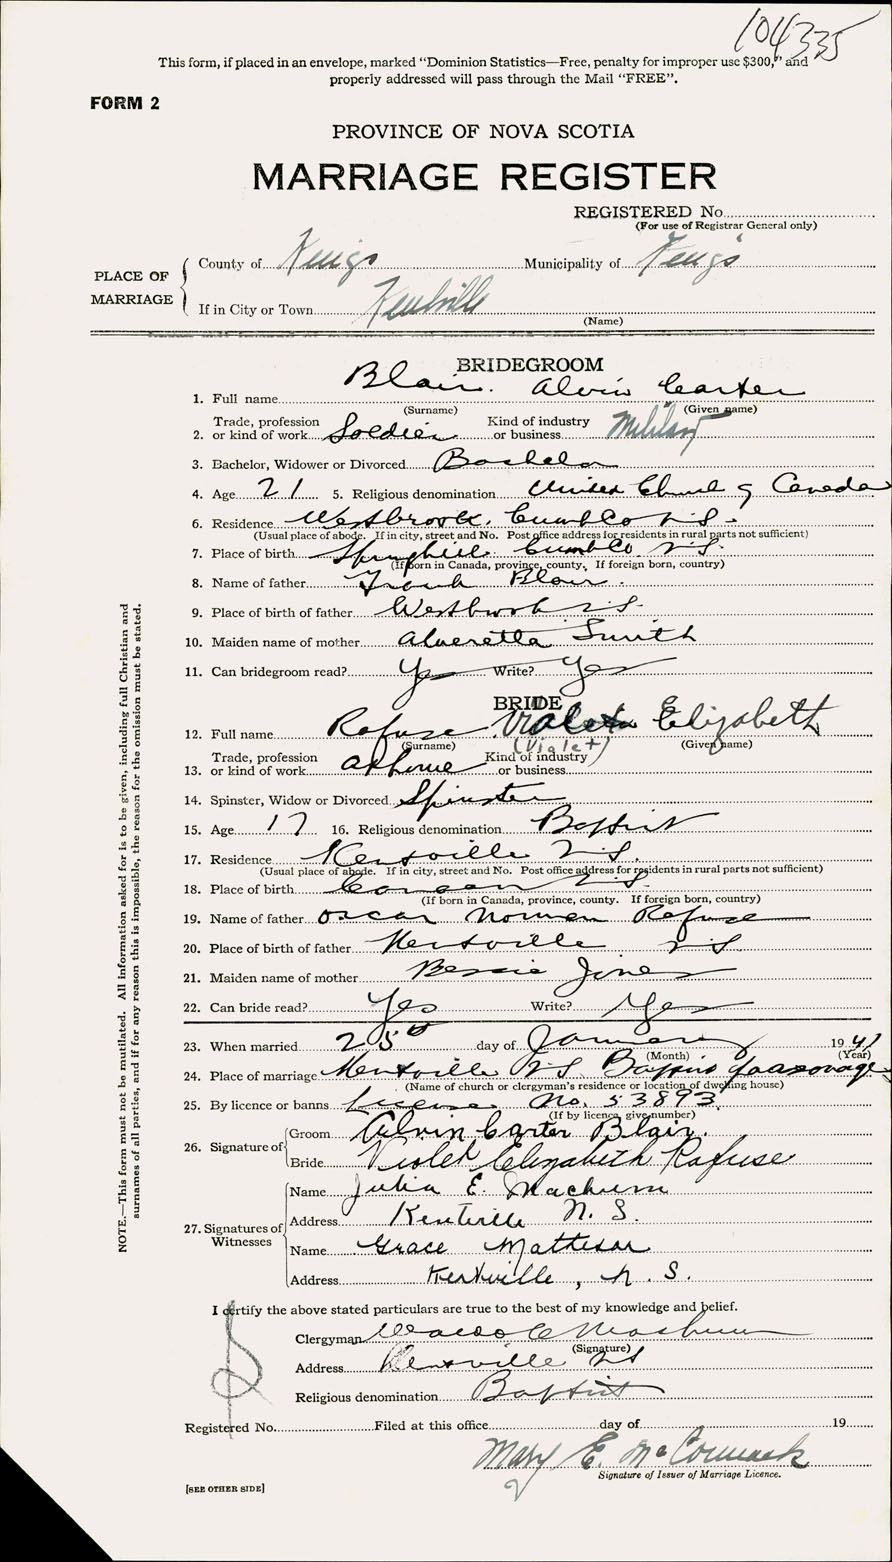 104335
This form, if placed in an envelope, marked “Dominion Statistics—Free, penalty for improper use $300,” and
properly addressed will pass through the Mail “FREE”.
FORM 2
PROVINCE OF NOVA SCOTIA
MARRIAGE REGISTER
REGISTERED No.
(For use of Registrar General only)
PLACE OF MARRIAGE
County of Kings Municipality of King's
If in City or Town Kentville
(Name)
BRIDEGROOM
1. Full name Blair. Alvin Carter
(Surname) (Given name)
2. Trade, profession or kind of work Soldier Kind of industry or business Military
3. Bachelor, Widower or Divorced Bachelor
4. Age 21 5. Religious denomination United Church of Canada
6. Residence Westbrook, Cumb Co N.S.
(Usual place of abode. If in city, street and No. Post office address for residents in rural parts not sufficient)
7. Place of birth Springhill Cumb Co N.S.
(If born in Canada, province, county. If foreign born, country)
8. Name of father Frank Blair.
9. Place of birth of father Westbrook N.S.
10. Maiden name of mother Alveretta Smith
11. Can bridegroom read? Yes Write? Yes
BRIDE
12. Full name Rafuse Elizabeth
(Surname) (Violet) (Given name)
13. Trade, profession or kind of work at home Kind of industry or business
14. Spinster, Widow or Divorced Spinster
15. Age 17 16. Religious denomination Baptist
17. Residence Kentville N.S.
(Usual place of abode. If in city, street and No. Post office address for residents in rural parts not sufficient)
18. Place of birth Canaan N.S.
(If born in Canada, province, county. If foreign born, country)
19. Name of father Oscar Norman Rafuse
20. Place of birth of father Kentville N.S.
21. Maiden name of mother Bessie Jones
22. Can bride read? Yes Write? Yes
23. When married 25th day of January 1941
(Month) (Year)
24. Place of marriage Kentville N.S. Baptist parsonage
(Name of church or clergyman's residence or location of dwelling house)
25. By licence or banns License No. 53893
(If by licence, give number)
26. Signature of
Groom Alvin Carter Blair.
Bride Violet Elizabeth Rafuse
27. Signatures of Witnesses
Name Julia E. Machum
Address Kentville N. S.
Name Grace Matheson
Address Kentville, N. S.
I certify the above stated particulars are true to the best of my knowledge and belief.
Clergyman Waldo C Machum
(Signature)
Address Kentville NS
Religious denomination Baptist
Registered No. Filed at this office day of 19
Mary E. McCormack
Signature of Issuer of Marriage Licence.
[SEE OTHER SIDE]
NOTE.—This form must not be mutilated. All information asked for is to be given, including full Christian and
surnames of all parties, and if for any reason this is impossible, the reason for the omission must be stated.